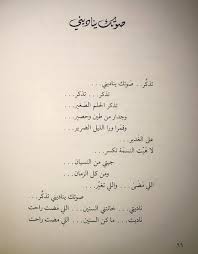 صوتك يناديني
تذكّر . . . صوتك يناديني
تذكر . . . تذكر . . .
تذكر الحلم الصغير . . .
وجدار من طين وحصير . . .
وقمرا ورا الليل الضرير . . .
على الغدير . . .
لا هبّت النسمة تكسر . . .
جيتي من النسيان . . .
ومن كل الزمان . . .
اللي مضى . . . واللي تغيّر . . .
صوتك يناديني تذكّر . . .
ناديتي . . . خانتني السنين . . . اللي مضت راحت
ناديت . . . ما كن السنين . . . اللي مضت راحت